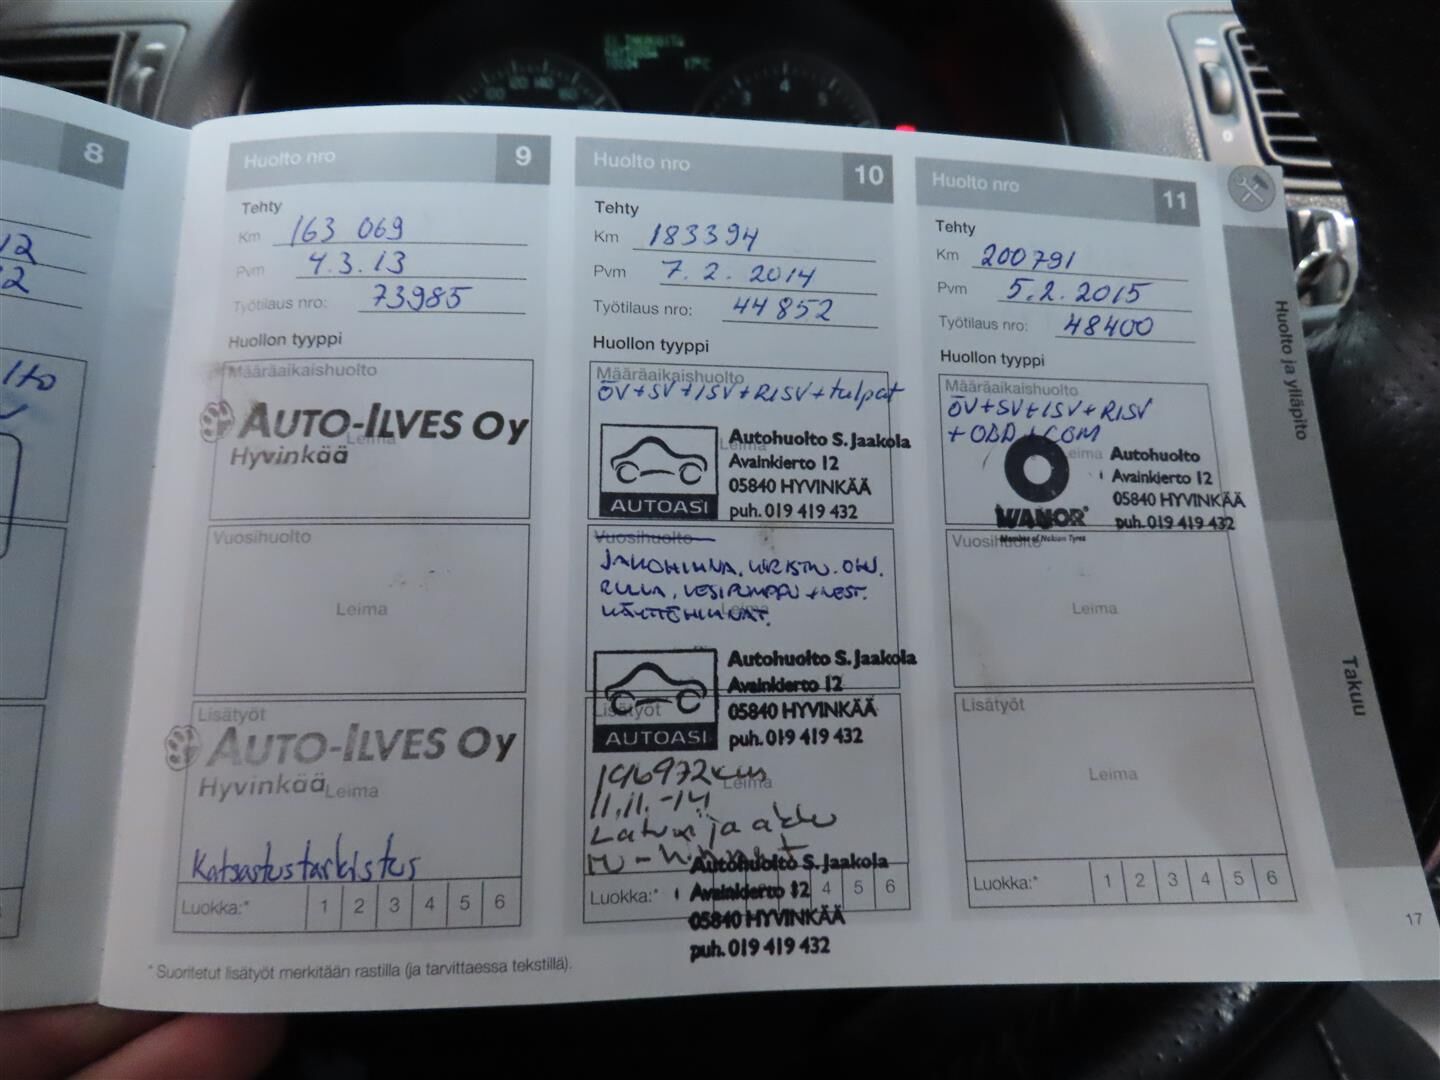 8
12
12
lto
Huolto nro 9
Tehty
Km 163 069
Pvm 4.3.13
Työtilaus nro: 73985
Huollon tyyppi
Määräaikaishuolto
AUTO-ILVES OY
Leima
Hyvinkää
Vuosihuolto
Leima
Lisätyöt
AUTO-ILVES OY
Hyvinkää
Leima
Katsastustarkistus
Luokka:* 1 2 3 4 5 6
* Suoritetut lisätyöt merkitään rastilla (ja tarvittaessa tekstillä).
Huolto nro 10
Tehty
Km 183394
Pvm 7.2.2014
Työtilaus nro: 44852
Huollon tyyppi
Määräaikaishuolto
ÖV+SV+ISV+RISV+tulpat
Leima
AUTOASI
Autohuolto S. Jaakola
Avainkierto 12
05840 HYVINKÄÄ
puh. 019 419 432
Vuosihuolto
JAKOHIHNA, KIRISTIN, OHJ.
RULLA, VESIPUMPPU + NEST.
KÄYTTÖHIHNAT.
Leima
AUTOASI
Autohuolto S. Jaakola
Avainkierto 12
05840 HYVINKÄÄ
puh. 019 419 432
Lisätyöt
196972km
Leima
11.11.-14
Laturi ja akku
Autohuolto S. Jaakola
Avainkierto 12
05840 HYVINKÄÄ
puh. 019 419 432
Luokka:* 4 5 6
Huolto nro 11
Tehty
Km 200791
Pvm 5.2.2015
Työtilaus nro: 48400
Huollon tyyppi
Määräaikaishuolto
ÖV+SV+ISV+RISV
+OBD+COM
Leima
WANOR
Member of Nokian Tyres
Autohuolto
Avainkierto 12
05840 HYVINKÄÄ
puh. 019 419 432
Vuosihuolto
Leima
Lisätyöt
Leima
Luokka:* 1 2 3 4 5 6
Huolto ja ylläpito
Takuu
17